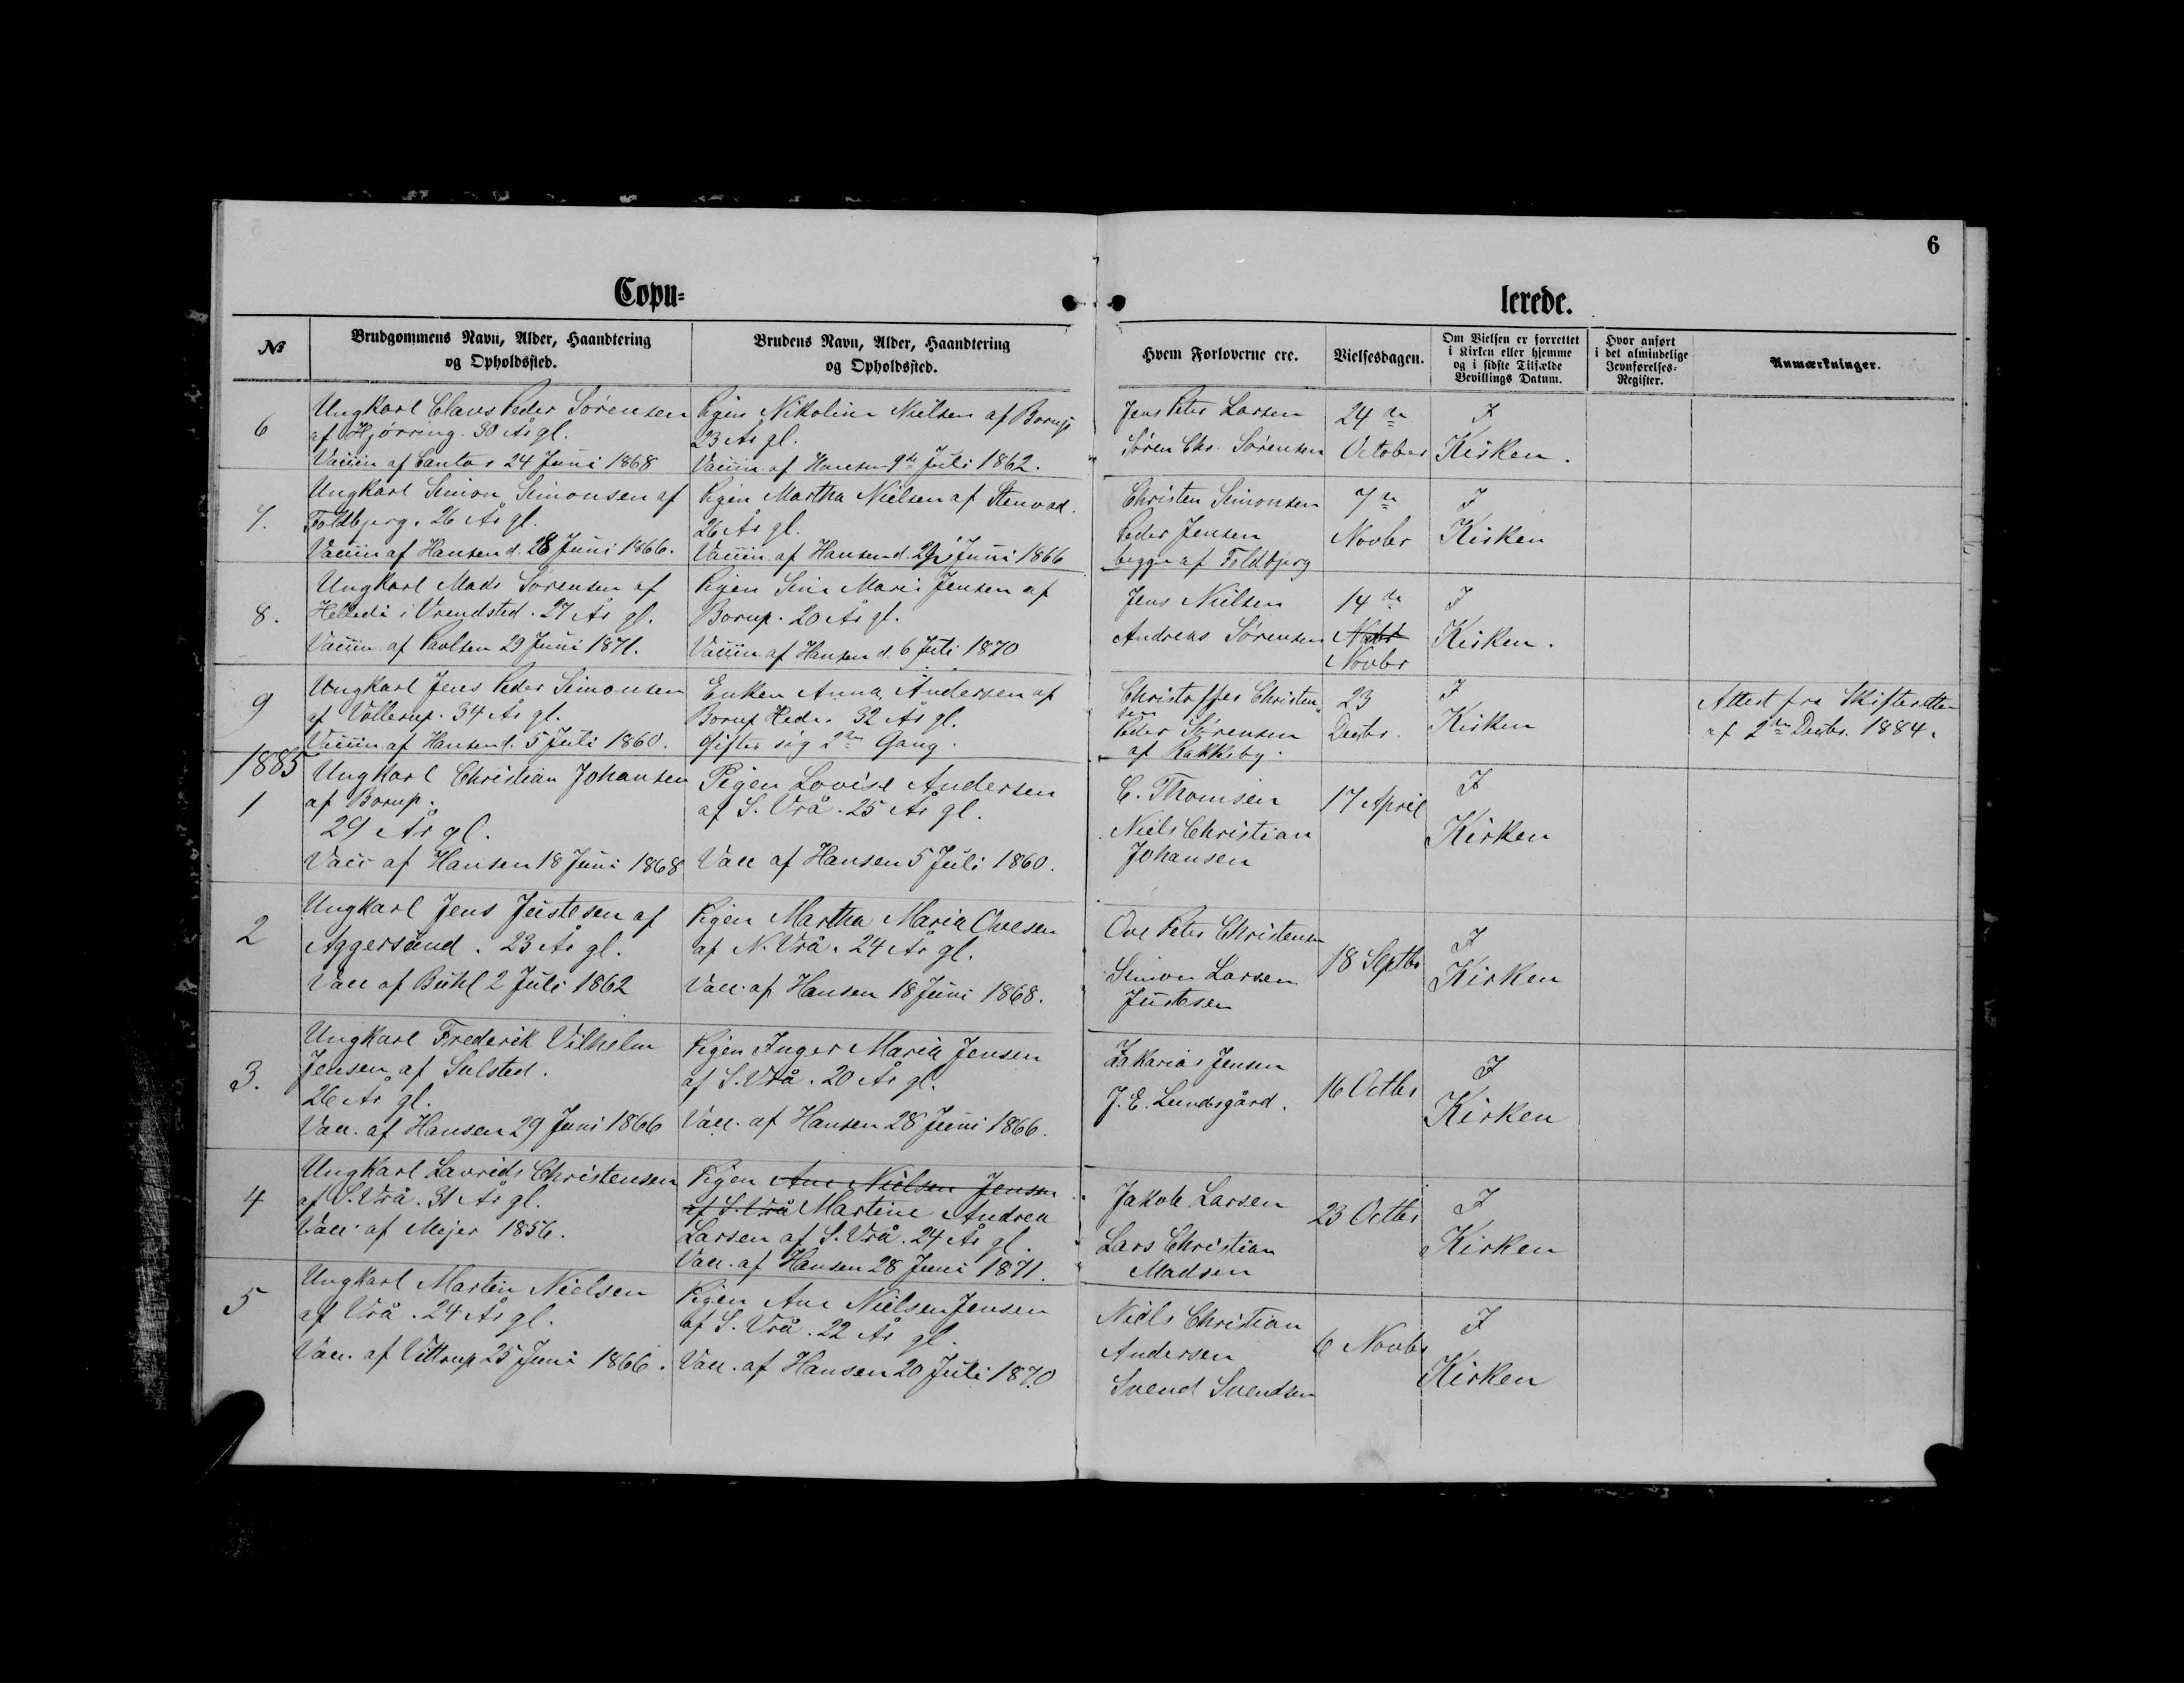 6
Copu=
lerede.
№
Brudgommens Navn, Alder, Haandtering
og Opholdssted.
Brudens Navn, Alder, Haandtering
og Opholdssted.
Hvem Forloverne ere.
Vielsesdagen.
Om Vielsen er forrettet
i Kirken eller hjemme
og i sidste Tilfælde
Bevillings Datum.
Hvor anført
i det almindelige
Jevnførelses-
Register.
Anmærkninger.
6
Ungkarl Claus Peder Sörensen
af Hjörring. 30 År gl.
Vaccin af Cantor 24 Juni 1868
Pigen Nikoline Nielsen af Borup
23 År gl.
Vaccin. af Hansen 9de Juli 1862.
Jens Peter Larsen
Sören Chr. Sörensen
24de
October
I
Kirken.
7.
Ungkarl Simon Simonsen af
Foldbjerg. 26 År gl.
Vaccin af Hansen d. 28 Juni 1866.
Pigen Martha Nielsen af Stenvad.
26 År gl.
Vaccin. af Hansen d. Juni 1866
Christen Simonsen
Peder Jensen
begge af Foldbjerg
7de
Novbr
I
Kirken
8.
Ungkarl Mads Sörensen af
i Vrendsted. 27 År gl.
Vaccin. af Povlsen 29 Juni 1871.
Pigen Sine Marie Jensen af
Borup. 20 År gl.
Vaccin af Hansen d. 6 Juli 1870
Jens Nielsen
Andreas Sörensen
14de
Novbr
I
Kirken.
9
Ungkarl Jens Peder Simonsen
af Vollerup. 34 År gl.
Vaccin af Hansen d. 5 Juli 1860.
Enken Anna Andersen af
Borup Hede. 32 År gl.
Gifter sig 2den Gang.
Christoffer Christen-
sen
Peder Sörensen
af Rakkeby.
23
Decbr.
I
Kirken
Attest fra Skifteretten
af 2den Decbr. 1884.
1885
1
Ungkarl Christian Johansen
af Borup.
29 År gl.
Vacc af Hansen 18 Juni 1868
Pigen Lovise Andersen
af S. Vrå. 25 År gl.
Vacc af Hansen 5 Juli 1860.
C. Thomsen
Niels Christian
Johansen
17 April
I
Kirken
2
Ungkarl Jens Justesen af
Aggersund. 23 År gl.
Vacc af Buhl 2 Juli 1862
Pigen Martha Maria Ovesen
af N. Vrå. 24 År gl.
Vacc. af Hansen 18 Juni 1868.
Ove Peter Christensen
Simon Larsen
Justesen
18 Septbr
I
Kirken
3.
Ungkarl Frederik Vilhelm
Jensen af Sulsted.
26 År gl.
Vacc. af Hansen 29 Juni 1866
Pigen Inger Maria Jensen
af S. Vrå. 20 År gl.
Vacc. af Hansen 28 Juni 1866.
Zakarias Jensen
J. E. Lundsgård.
16 Octbr
I
Kirken
4
Ungkarl Lavrids Christensen
af S. Vrå. 31 År gl.
Vacc. af Mejer 1856.
Pigen Ane Nielsen Jensen
af S. Vrå Martine Andrea
Larsen af S. Vrå. 24 År gl.
Vacc. af Hansen 28 Juni 1871.
Jakob Larsen
Lars Christian
Madsen
23 Octbr
I
Kirken
5
Ungkarl Martin Nielsen
af Vrå. 24 År gl.
Vacc. af Vittrup 25 Juni 1866.
Pigen Ane Nielsen Jensen
af S. Vrå. 22 År gl.
Vacc. af Hansen 20 Juli 1870
Niels Christian
Andersen
Svend Svendsen
6 Novbr
I
Kirken